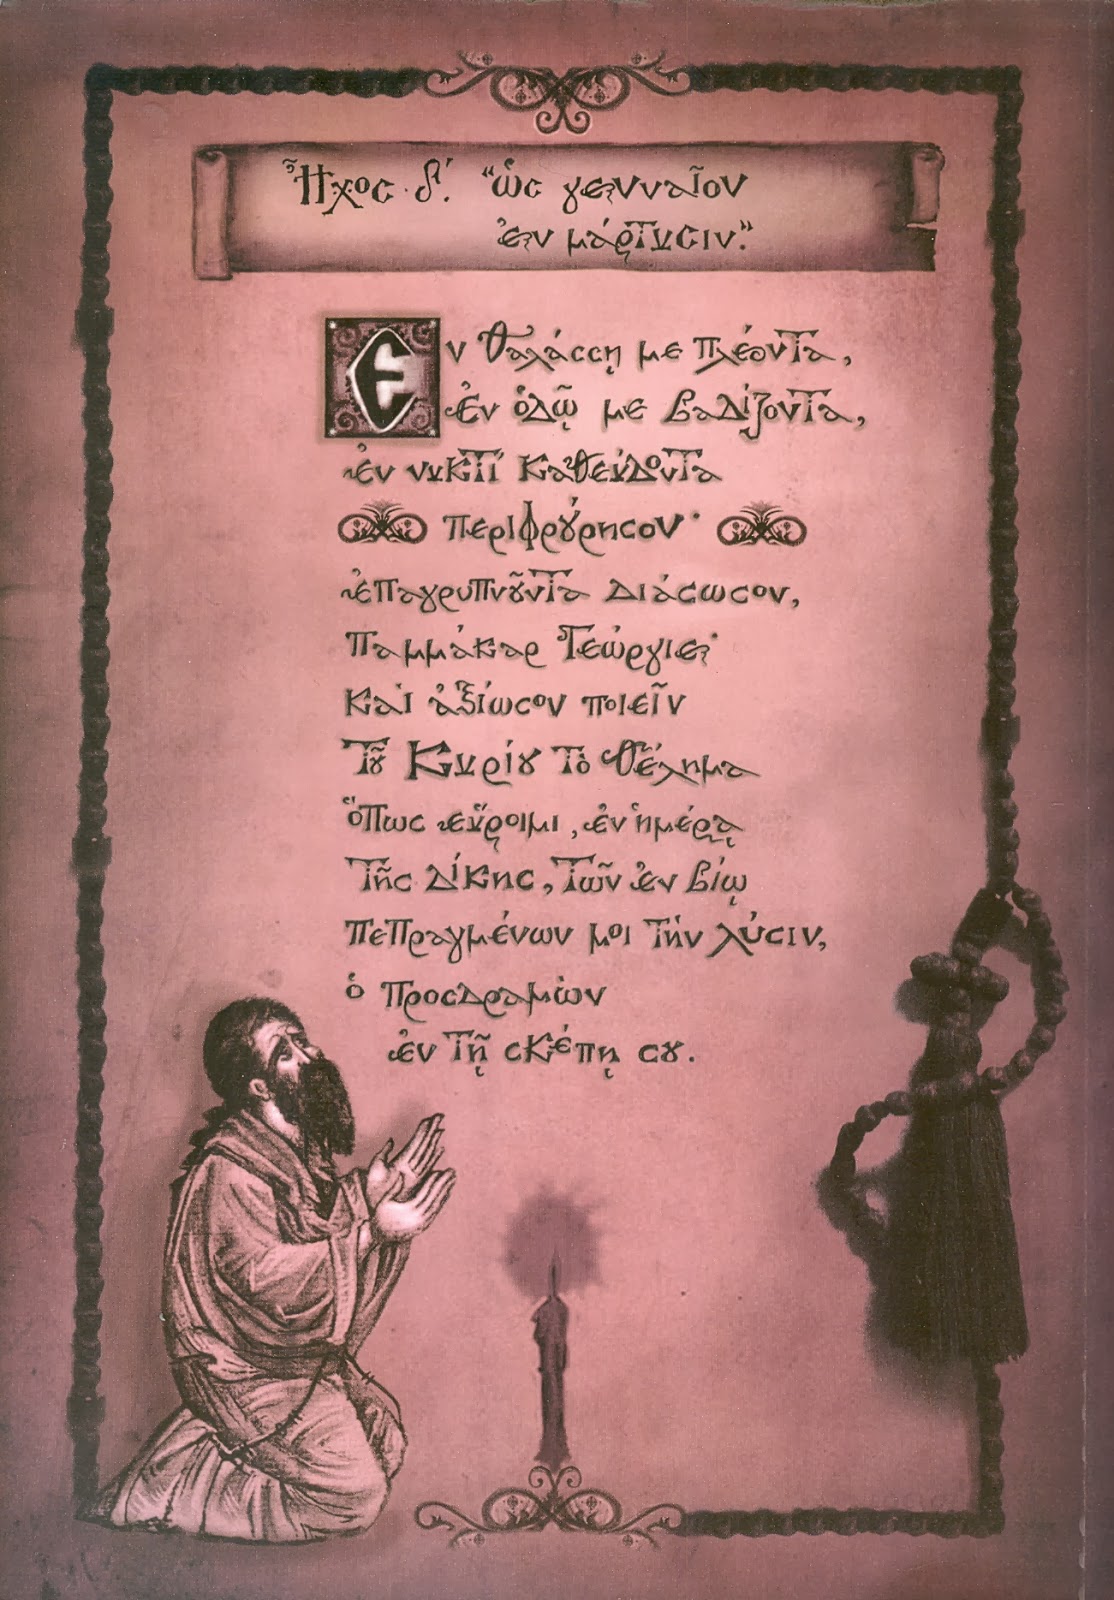 Ἦχος δ΄. "ὡς γενναῖον
ἐν μάρτυσιν."
Ἐν θαλάσσῃ με πλέοντα,
ἐν ὁδῷ με βαδίζοντα,
ἐν νυκτί καθεύδοντα
περιφρούρησον·
ἐπαγρυπνοῦντα διάσωσον,
παμμάκαρ Γεώργιε·
καὶ ἀξίωσον ποιεῖν
τοῦ Κυρίου τὸ θέλημα
ὅπως εὕροιμι, ἐν ἡμέρᾳ
τῆς δίκης, τῶν ἐν βίῳ
πεπραγμένων μοι τήν λύσιν,
ὁ προσδραμὼν
ἐν τῇ σκέπῃ σου.